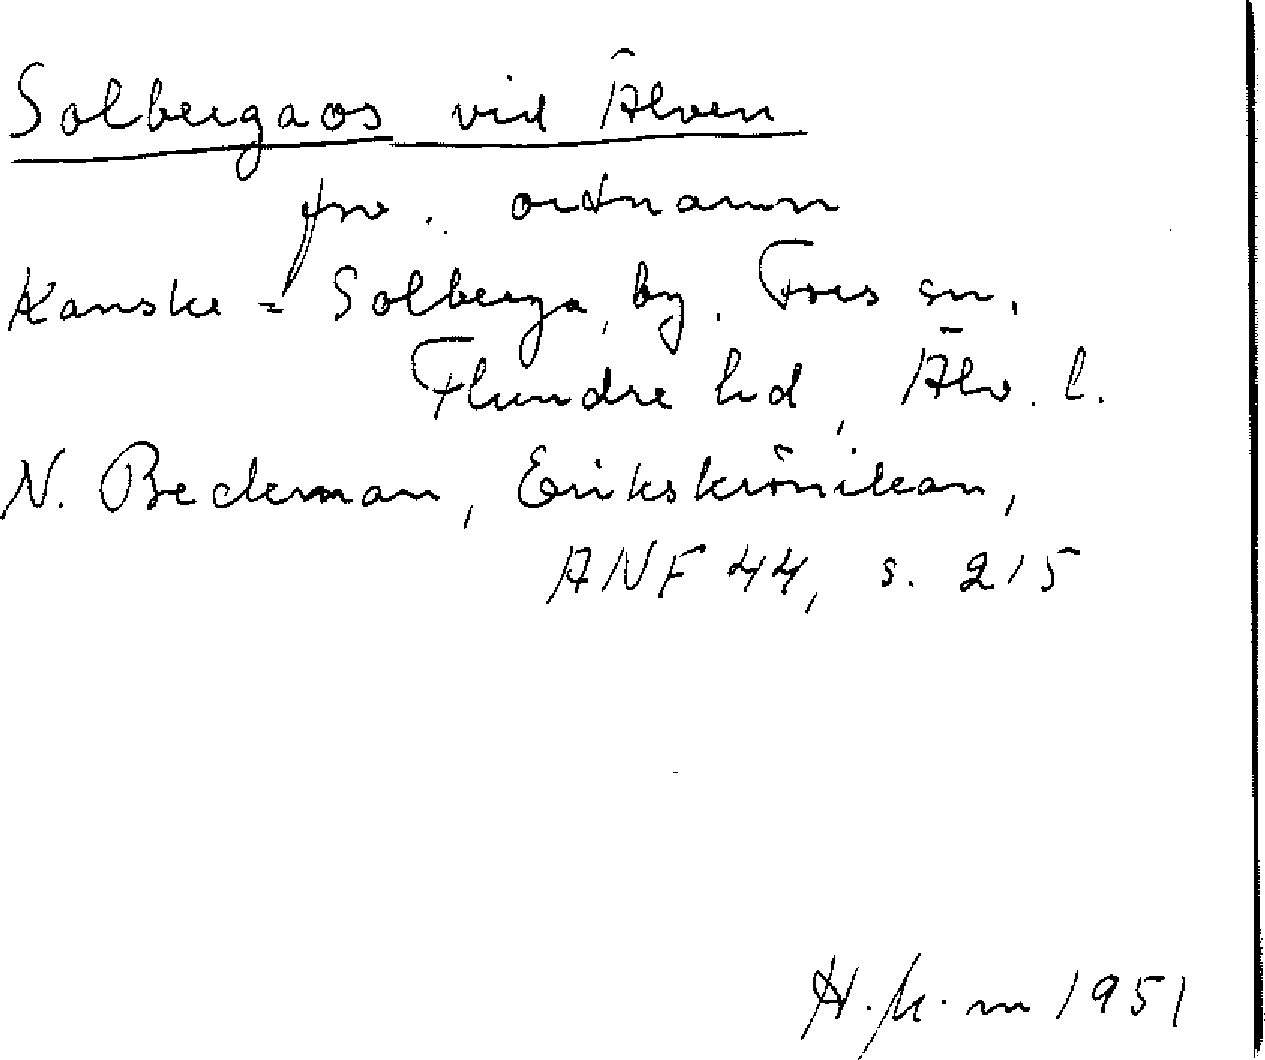 Solbergaos vid Älven
fnv. ortnamn
Kanske = Solberga, by, Fors sn,
Flundre hd, Älv. l.
N. Beckman, Erikskrönikan,
ANF 44, s. 215
1951